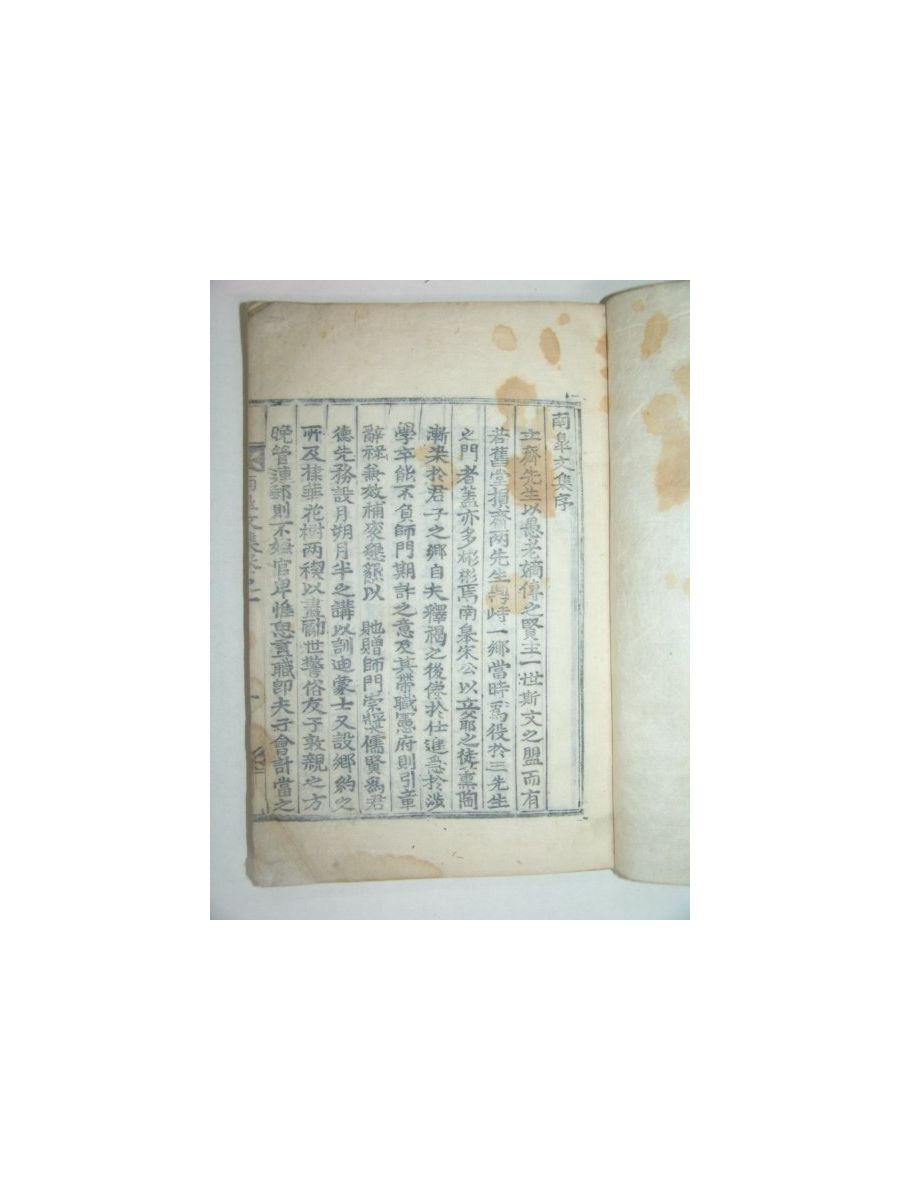 南皐文集序
立齋先生以愚老嫡傳之賢主一世斯文之盟而有
若舊堂損齋兩先生與峙一鄉當時爲役於三先生
之門者蓋亦多彬彬焉南皐宋公以立爺之徒薰陶
漸染於君子之鄉自夫釋褐之後倦於仕進急於涉
學卒能不負師門期許之意及其帶職憲府則引章
辭祿兼效補袞懇懇以 貤贈師門崇奬儒賢爲君
德先務設月朔月半之講以訓迪蒙士又設鄉約之
所及棣華花樹兩禊以盡勵世警俗友于敦親之方
晩管蓮郵則不嫌官卑惟思貢職卽夫子會計當之
南皐文集卷之一